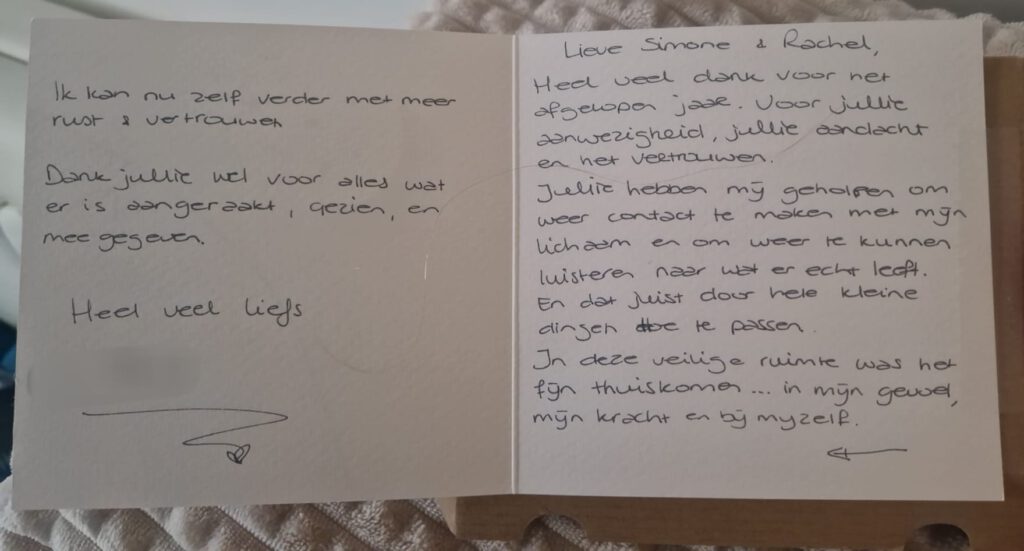 Lieve Simone & Rachel,
Heel veel dank voor het
afgelopen jaar. Voor jullie
aanwezigheid, jullie aandacht
en het vertrouwen.
Jullie hebben mij geholpen om
weer contact te maken met mijn
lichaam en om weer te kunnen
luisteren naar wat er echt leeft.
En dat juist door hele kleine
dingen toe te passen.
In deze veilige ruimte was het
fijn thuiskomen... in mijn gevoel,
mijn kracht en bij myzelf.
Ik kan nu zelf verder met meer
rust & vertrouwen
Dank jullie wel voor alles wat
er is aangeraakt, gezien, en
mee gegeven.
Heel veel liefs